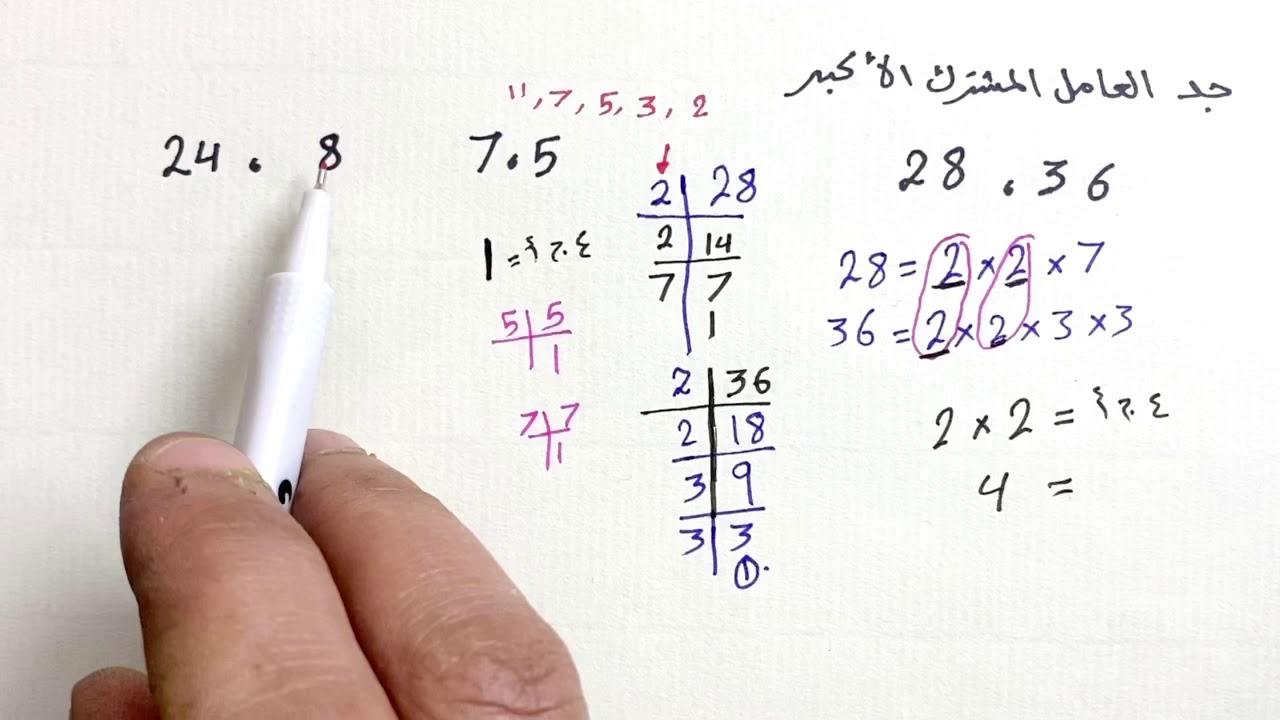 جد العامل المشترك الأكبر
28 . 36
28 = 2 × 2 × 7
36 = 2 × 2 × 3 × 3
2 × 2 = ع.م.أ
4 =
11, 7, 5, 3, 2
2 | 28
2 | 14
7 | 7
1
2 | 36
2 | 18
3 | 9
3 | 3
1
7 . 5
1 = ع.م.أ
5 | 5
1
7 | 7
1
24 . 8